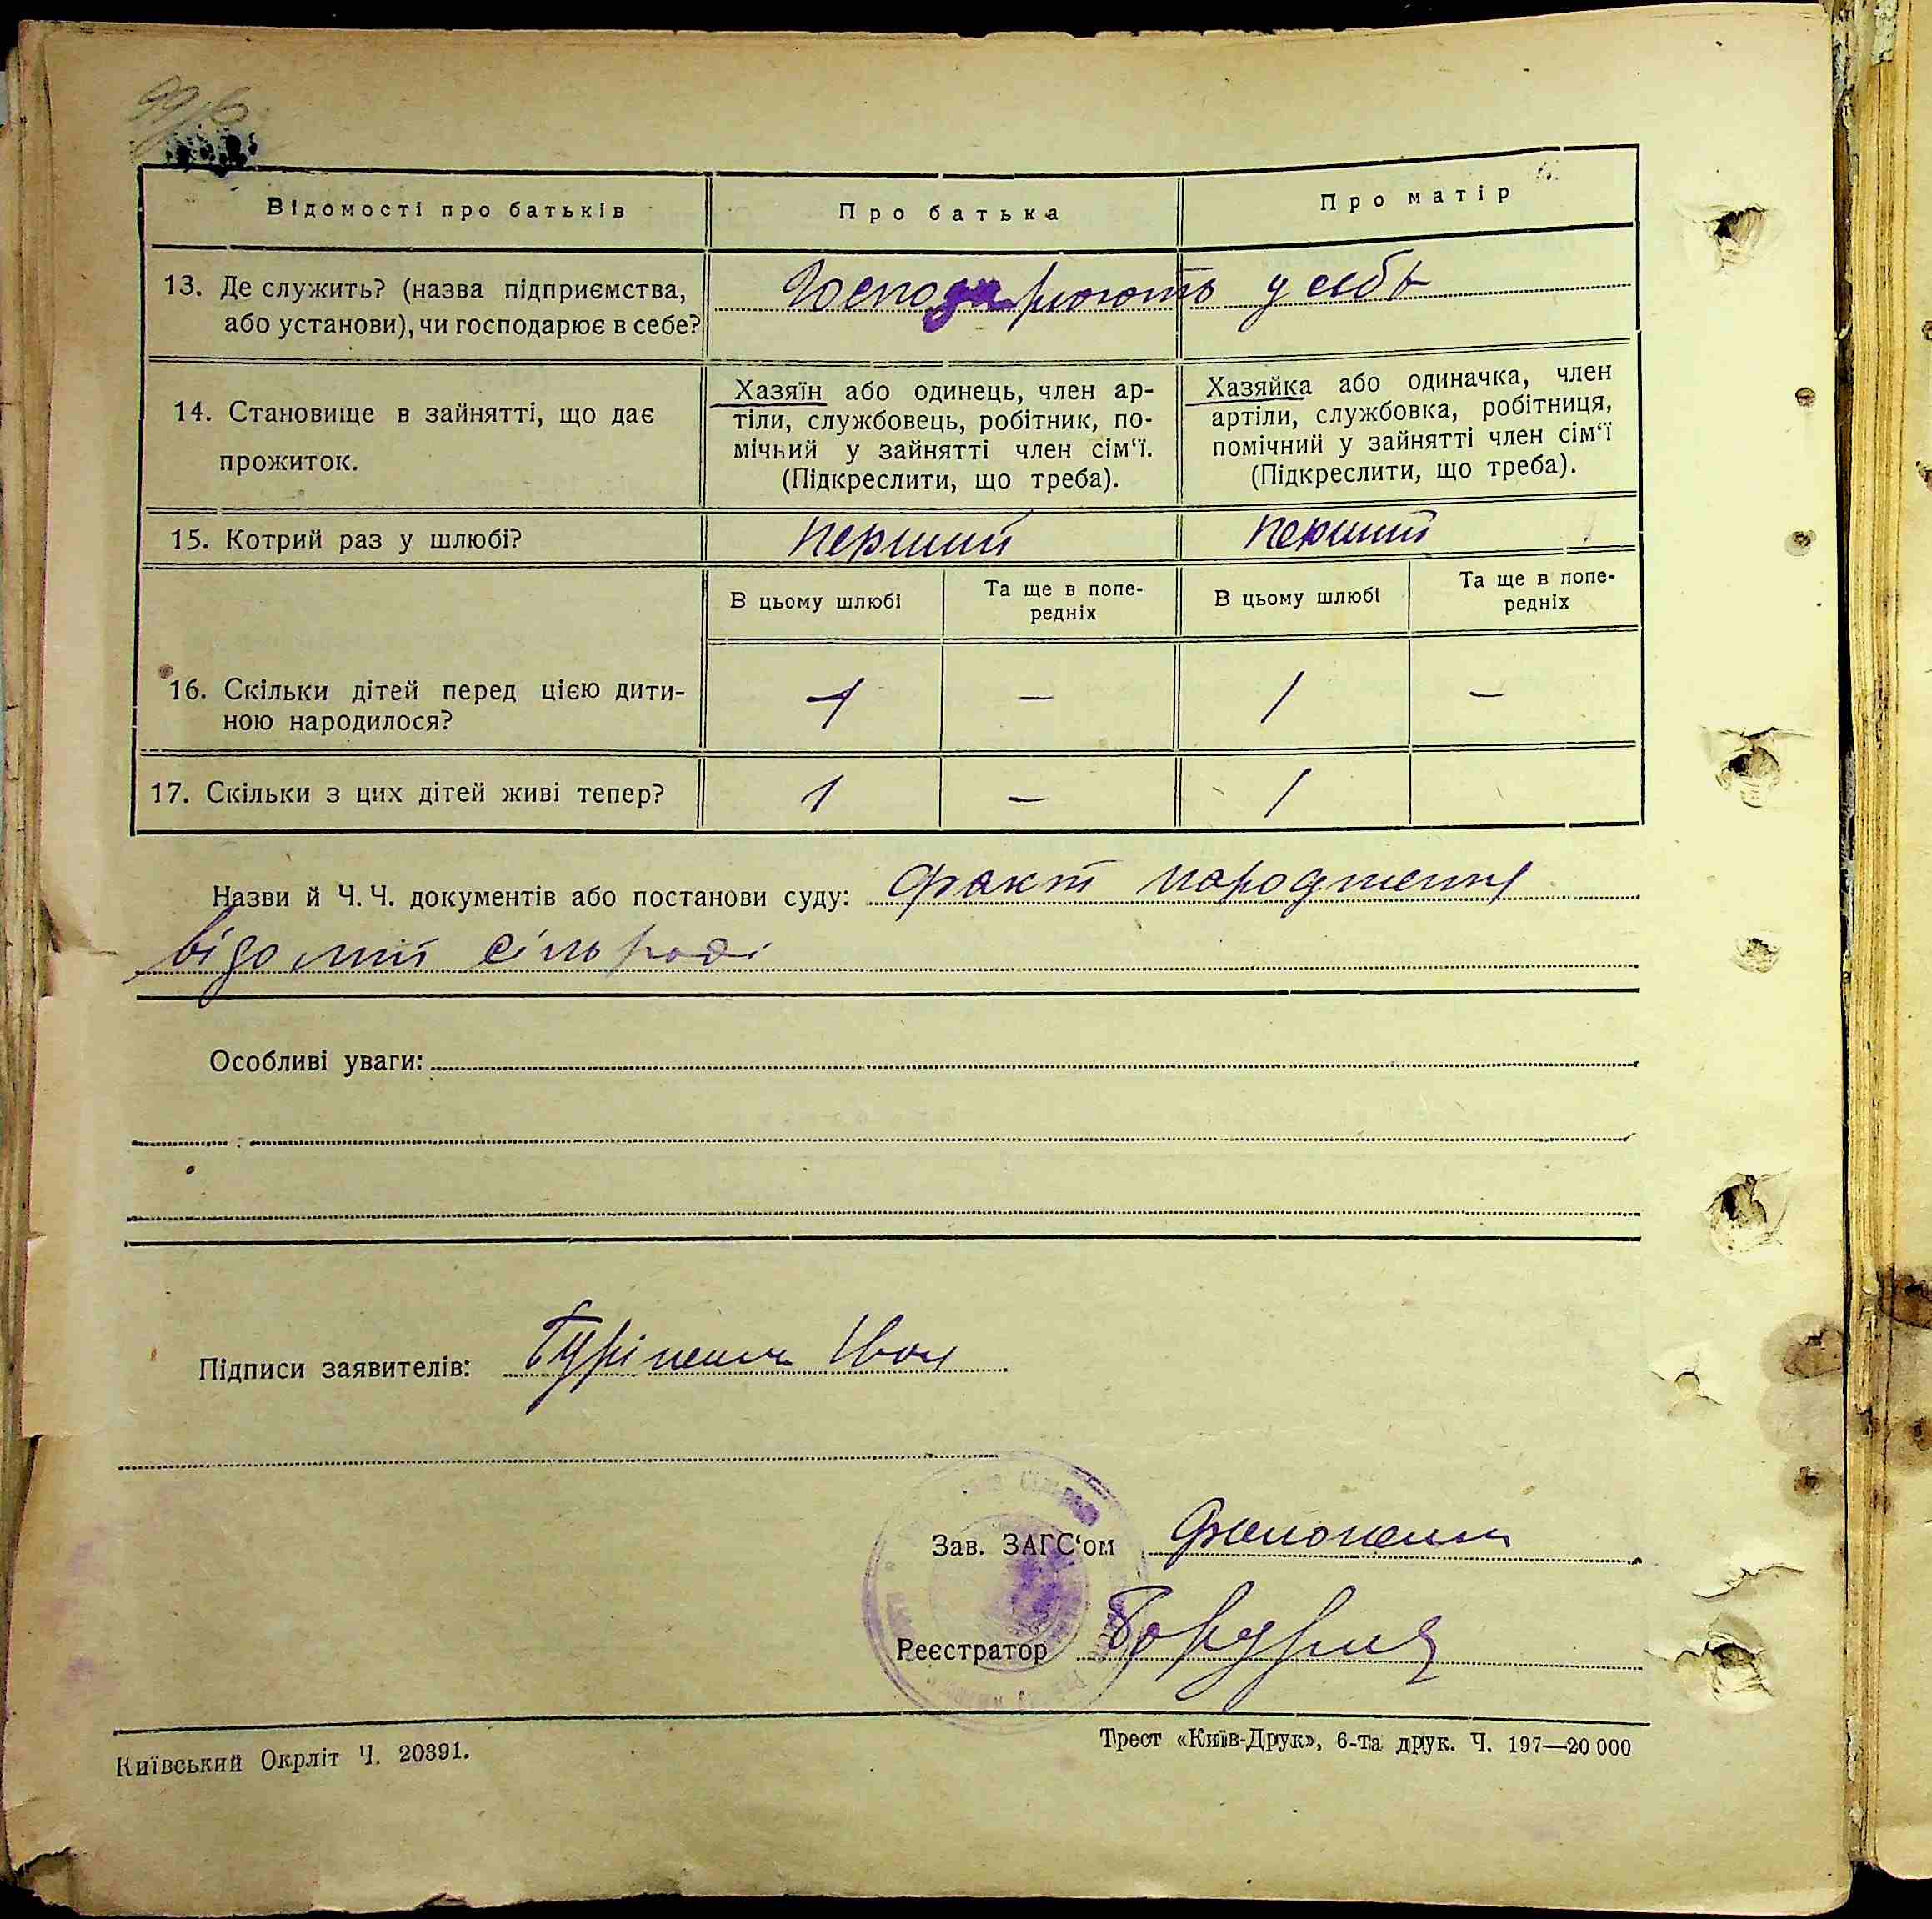 Відомості про батьків
Про батька
Про матір
13. Де служить? (назва підприємства,
або установи), чи господарює в себе?
Господарюють у себе
14. Становище в зайнятті, що дає
прожиток.
Хазяїн або одинець, член ар-
тіли, службовець, робітник, по-
мічний у зайнятті член сім‘ї.
(Підкреслити, що треба).
Хазяйка або одиначка, член
артіли, службовка, робітниця,
помічний у зайнятті член сім‘ї
(Підкреслити, що треба).
15. Котрий раз у шлюбі?
перший
перший
В цьому шлюбі
Та ще в попе-
редніх
В цьому шлюбі
Та ще в попе-
редніх
16. Скільки дітей перед цією дити-
ною народилося?
1 — 1 —
17. Скільки з цих дітей живі тепер?
1 — 1
Назви й Ч. Ч. документів або постанови суду: факт народження
відомий сільраді
Особливі уваги:
Підписи заявителів: Іван
Зав. ЗАГС‘ом
Реєстратор
Київський Окрліт Ч. 20391.
Трест «Київ-Друк», 6-та друк. Ч. 197—20 000